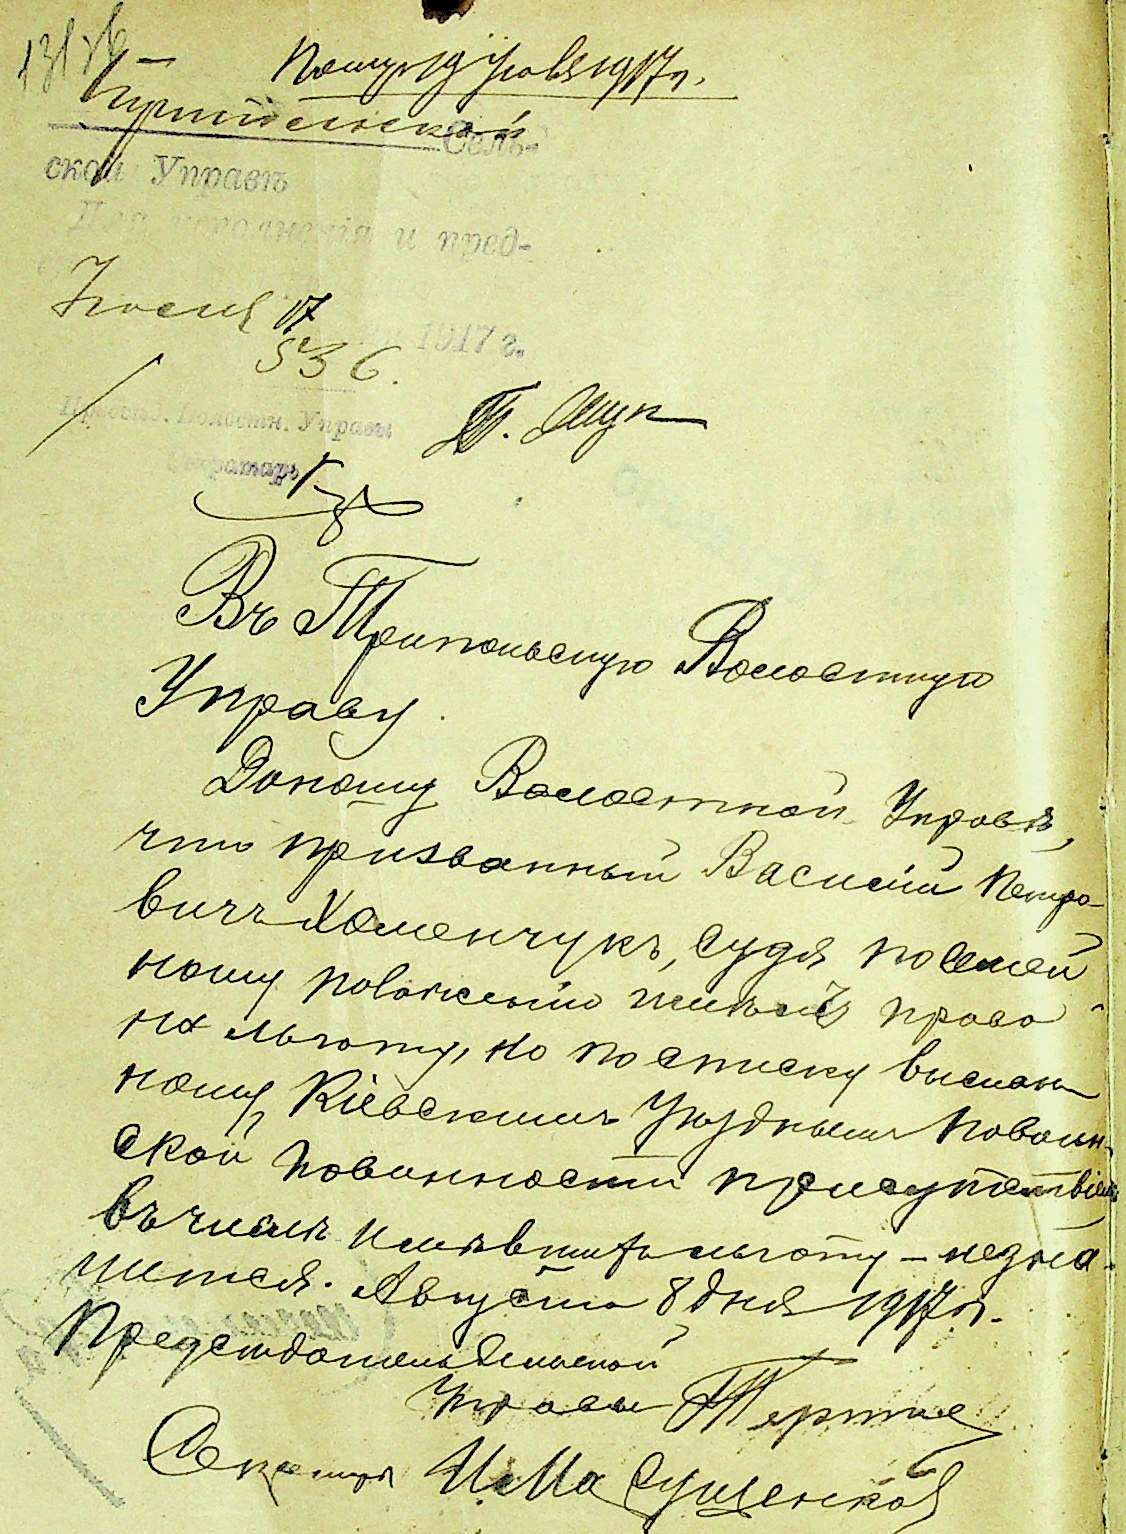 1917 г.
Сель-
ской Управѣ
Для исполненія и пред-
Іюля 17
1917 г.
536.
Предсѣд. Волостн. Управы
Секретарь
Въ Трипольскую Волостную
Управу.
Доношу Волостной Управѣ,
что призванный Василій Петро-
вичъ Хоменчукъ, судя по семей-
ному положенію имѣетъ право
на льготу, но по списку выслан-
ному Кіевскимъ Уѣзднымъ по воин-
ской повинности присутствіемъ
въ числѣ имѣвшихъ льготу – не зна-
чится. Августа 8 дня 1917 г.
Предсѣдатель Сельской
Управы
Секретарь Сущенко